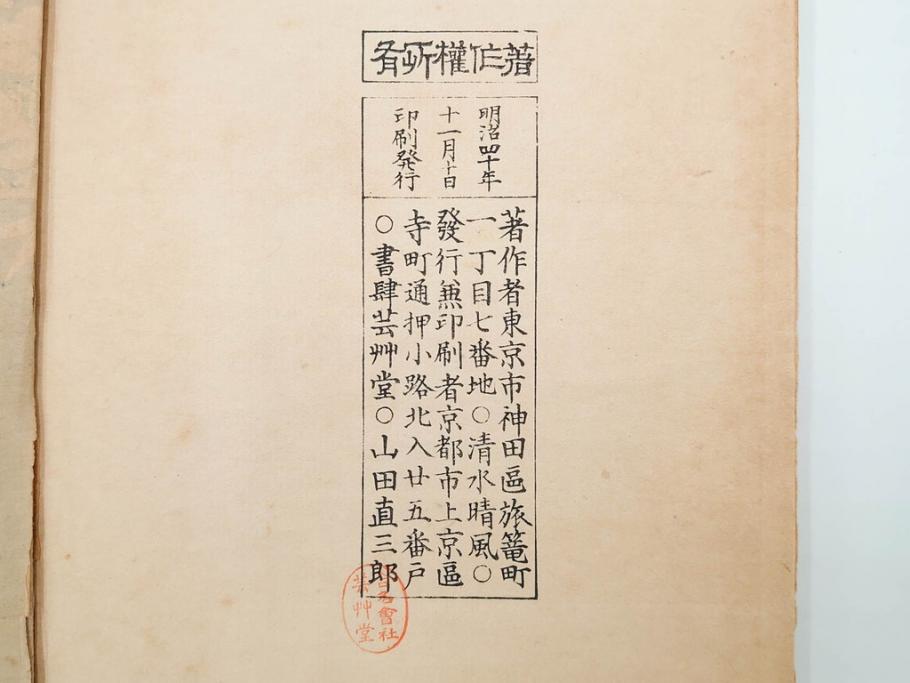 著作權所有
明治四十年
十一月十日
印刷発行
著作者東京市神田區旅篭町
一丁目七番地○清水晴風○
發行兼印刷者京都市上京區
寺町通押小路北入廿五番戸
○書肆芸艸堂○山田直三郎
合名會社
芸艸堂